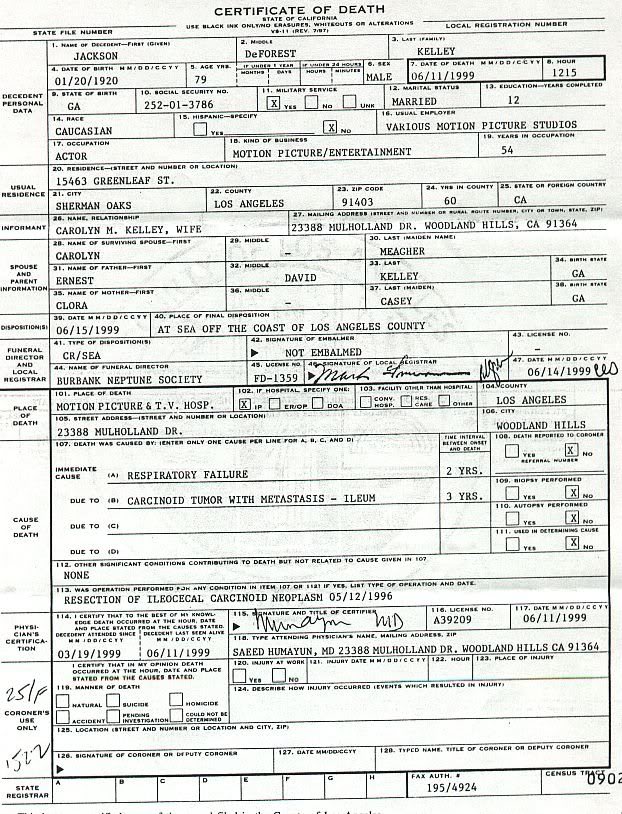 CERTIFICATE OF DEATH
STATE OF CALIFORNIA
USE BLACK INK ONLY/NO ERASURES, WHITEOUTS OR ALTERATIONS
VS-11 (REV. 7/97)
STATE FILE NUMBER
LOCAL REGISTRATION NUMBER
DECEDENT PERSONAL DATA
1. NAME OF DECEDENT—FIRST (GIVEN) 2. MIDDLE 3. LAST (FAMILY)
JACKSON DeFOREST KELLEY
4. DATE OF BIRTH MM/DD/CCYY 5. AGE YRS. IF UNDER 1 YEAR MONTHS DAYS IF UNDER 24 HOURS HOURS MINUTES 6. SEX 7. DATE OF DEATH MM/DD/CCYY 8. HOUR
01/20/1920 79 MALE 06/11/1999 1215
9. STATE OF BIRTH 10. SOCIAL SECURITY NO. 11. MILITARY SERVICE 12. MARITAL STATUS 13. EDUCATION—YEARS COMPLETED
GA 252-01-3786 X YES NO UNK MARRIED 12
14. RACE 15. HISPANIC—SPECIFY 16. USUAL EMPLOYER
CAUCASIAN YES X NO VARIOUS MOTION PICTURE STUDIOS
17. OCCUPATION 18. KIND OF BUSINESS 19. YEARS IN OCCUPATION
ACTOR MOTION PICTURE/ENTERTAINMENT 54
USUAL RESIDENCE
20. RESIDENCE—(STREET AND NUMBER OR LOCATION)
15463 GREENLEAF ST.
21. CITY 22. COUNTY 23. ZIP CODE 24. YRS IN COUNTY 25. STATE OR FOREIGN COUNTRY
SHERMAN OAKS LOS ANGELES 91403 60 CA
INFORMANT
26. NAME, RELATIONSHIP 27. MAILING ADDRESS (STREET AND NUMBER OR RURAL ROUTE NUMBER, CITY OR TOWN, STATE, ZIP)
CAROLYN M. KELLEY, WIFE 23388 MULHOLLAND DR. WOODLAND HILLS, CA 91364
SPOUSE AND PARENT INFORMATION
28. NAME OF SURVIVING SPOUSE—FIRST 29. MIDDLE 30. LAST (MAIDEN NAME)
CAROLYN – MEAGHER
31. NAME OF FATHER—FIRST 32. MIDDLE 33. LAST 34. BIRTH STATE
ERNEST DAVID KELLEY GA
35. NAME OF MOTHER—FIRST 36. MIDDLE 37. LAST (MAIDEN) 38. BIRTH STATE
CLORA – CASEY GA
DISPOSITION(S)
39. DATE MM/DD/CCYY 40. PLACE OF FINAL DISPOSITION
06/15/1999 AT SEA OFF THE COAST OF LOS ANGELES COUNTY
FUNERAL DIRECTOR AND LOCAL REGISTRAR
41. TYPE OF DISPOSITION(S) 42. SIGNATURE OF EMBALMER 43. LICENSE NO.
CR/SEA NOT EMBALMED –
44. NAME OF FUNERAL DIRECTOR 45. LICENSE NO. 46. SIGNATURE OF LOCAL REGISTRAR 47. DATE MM/DD/CCYY
BURBANK NEPTUNE SOCIETY FD-1359 06/14/1999
PLACE OF DEATH
101. PLACE OF DEATH 102. IF HOSPITAL, SPECIFY ONE: 103. FACILITY OTHER THAN HOSPITAL: 104. COUNTY
MOTION PICTURE & T.V. HOSP. X IP ER/OP DOA CONV. HOSP. RES. CARE OTHER LOS ANGELES
105. STREET ADDRESS—(STREET AND NUMBER OR LOCATION) 106. CITY
23388 MULHOLLAND DR. WOODLAND HILLS
CAUSE OF DEATH
107. DEATH WAS CAUSED BY: (ENTER ONLY ONE CAUSE PER LINE FOR A, B, C, AND D) TIME INTERVAL BETWEEN ONSET AND DEATH 108. DEATH REPORTED TO CORONER
YES X NO
REFERRAL NUMBER
IMMEDIATE CAUSE (A) RESPIRATORY FAILURE 2 YRS.
109. BIOPSY PERFORMED
YES X NO
DUE TO (B) CARCINOID TUMOR WITH METASTASIS - ILEUM 3 YRS.
110. AUTOPSY PERFORMED
YES X NO
DUE TO (C)
111. USED IN DETERMINING CAUSE
YES X NO
DUE TO (D)
112. OTHER SIGNIFICANT CONDITIONS CONTRIBUTING TO DEATH BUT NOT RELATED TO CAUSE GIVEN IN 107
NONE
113. WAS OPERATION PERFORMED FOR ANY CONDITION IN ITEM 107 OR 112? IF YES, LIST TYPE OF OPERATION AND DATE.
RESECTION OF ILEOCECAL CARCINOID NEOPLASM 05/12/1996
PHYSICIAN'S CERTIFICATION
114. I CERTIFY THAT TO THE BEST OF MY KNOWLEDGE DEATH OCCURRED AT THE HOUR, DATE AND PLACE STATED FROM THE CAUSES STATED.
DECEDENT ATTENDED SINCE MM/DD/CCYY DECEDENT LAST SEEN ALIVE MM/DD/CCYY
03/19/1999 06/11/1999
115. SIGNATURE AND TITLE OF CERTIFIER 116. LICENSE NO. 117. DATE MM/DD/CCYY
MD A39209 06/11/1999
118. TYPE ATTENDING PHYSICIAN'S NAME, MAILING ADDRESS, ZIP
SAEED HUMAYUN, MD 23388 MULHOLLAND DR. WOODLAND HILLS CA 91364
CORONER'S USE ONLY
I CERTIFY THAT IN MY OPINION DEATH OCCURRED AT THE HOUR, DATE AND PLACE STATED FROM THE CAUSES STATED.
119. MANNER OF DEATH
NATURAL SUICIDE HOMICIDE
ACCIDENT PENDING INVESTIGATION COULD NOT BE DETERMINED
120. INJURY AT WORK 121. INJURY DATE MM/DD/CCYY 122. HOUR 123. PLACE OF INJURY
YES NO
124. DESCRIBE HOW INJURY OCCURRED (EVENTS WHICH RESULTED IN INJURY)
125. LOCATION (STREET AND NUMBER OR LOCATION AND CITY, ZIP)
126. SIGNATURE OF CORONER OR DEPUTY CORONER 127. DATE MM/DD/CCYY 128. TYPED NAME, TITLE OF CORONER OR DEPUTY CORONER
STATE REGISTRAR
A B C D E F G H FAX AUTH. # CENSUS TRACT
195/4924 0902